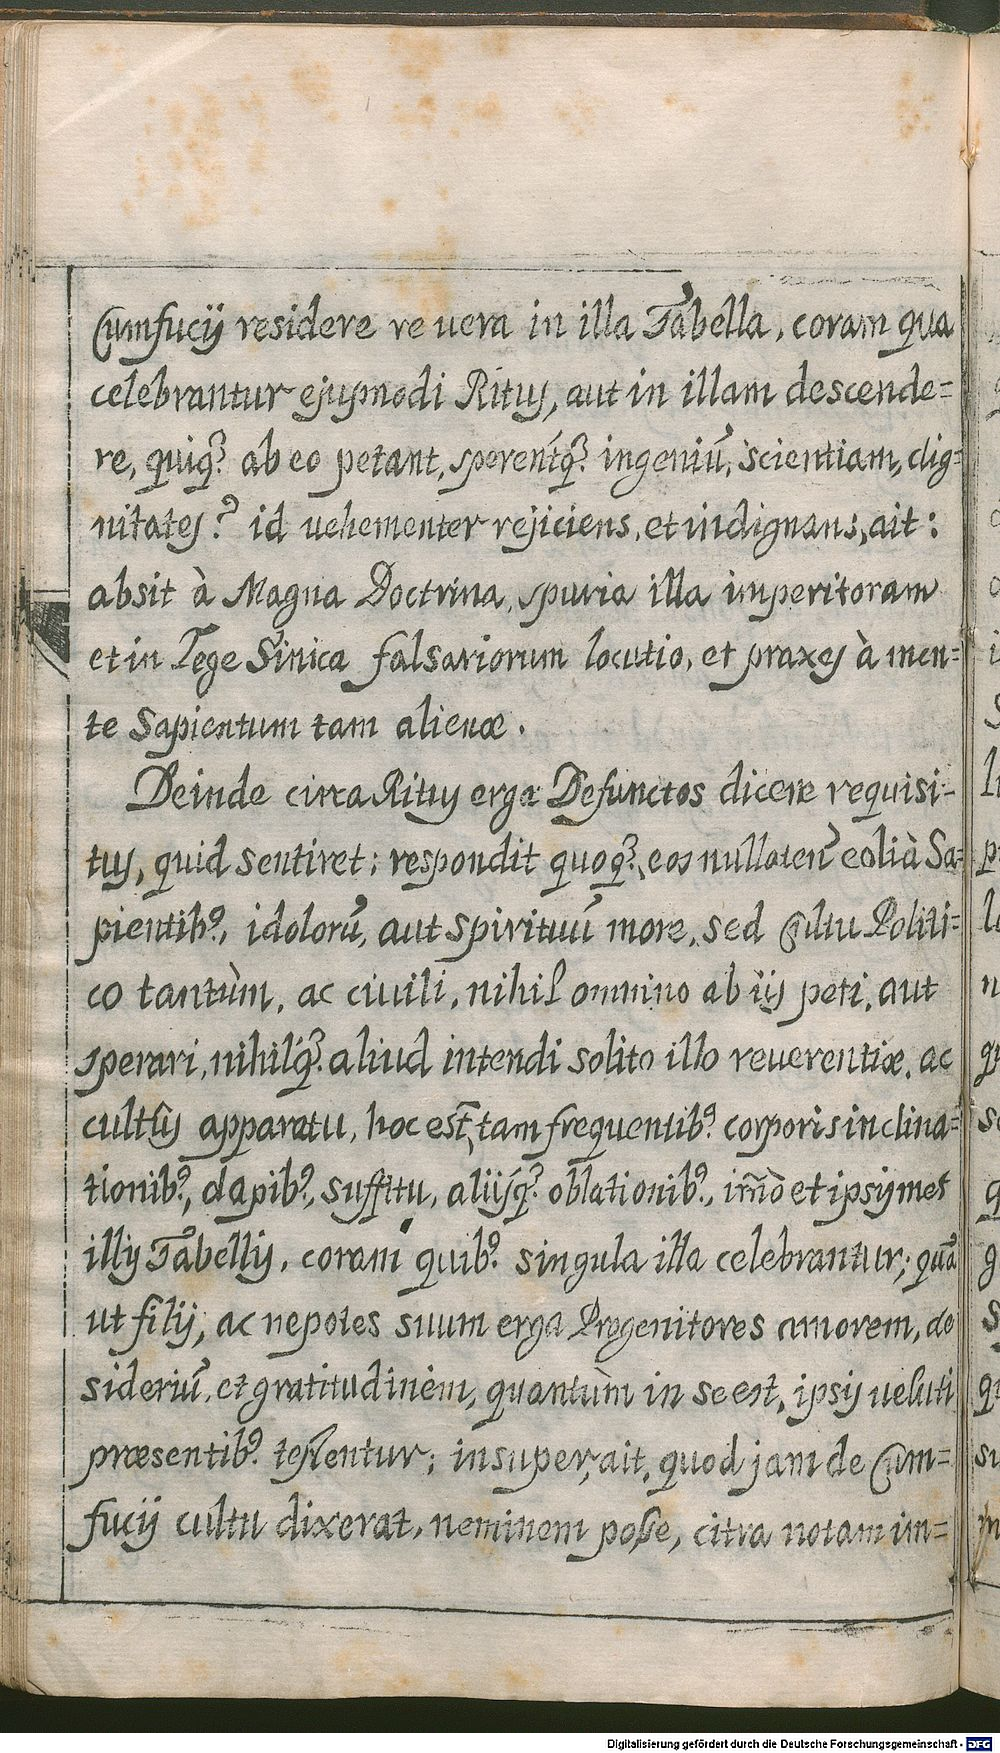 Cumfucij residere re vera in illa Tabella, coram qua
celebrantur ejusmodi Ritus, aut in illam descende=
re, quiq; ab eo petant, sperentq; ingeniũ, scientiam, dig=
nitates? id vehementer rejiciens, et indignans, ait:
absit à Magna Doctrina, spuria illa imperitoram
et in Lege Sinica falsariorum locutio, et praxes à men=
te Sapientum tam alienæ.
Deinde circa Ritus erga Defunctos dicere requisi-
tus, quid sentiret: respondit quoq;, eos nullatenꝰ coli à Sa=
pientibꝰ, idolorũ, aut spirituũ more, sed Cultu Politi=
co tantùm, ac civili, nihil omnino ab ijs peti, aut
sperari, nihilq; aliud intendi solito illo reverentiæ, ac
cultûs apparatu, hoc est, tam frequentibꝰ corporis inclina=
tionibꝰ, dapibꝰ, suffitu, aliisq; oblationibꝰ, im̃ò et ipsismet
illis Tabellis, coram quibꝰ singula illa celebrantur; quã
ut filij, ac nepotes suum erga Progenitores amorem, de
sideriũ, et gratitudinem, quantùm in se est, ipsis veluti
præsentibꝰ testentur; insuper, ait, quod jam de Cum=
fucij cultu dixerat, neminem posse, citra notam im=
Digitalisierung gefördert durch die Deutsche Forschungsgemeinschaft - DFG